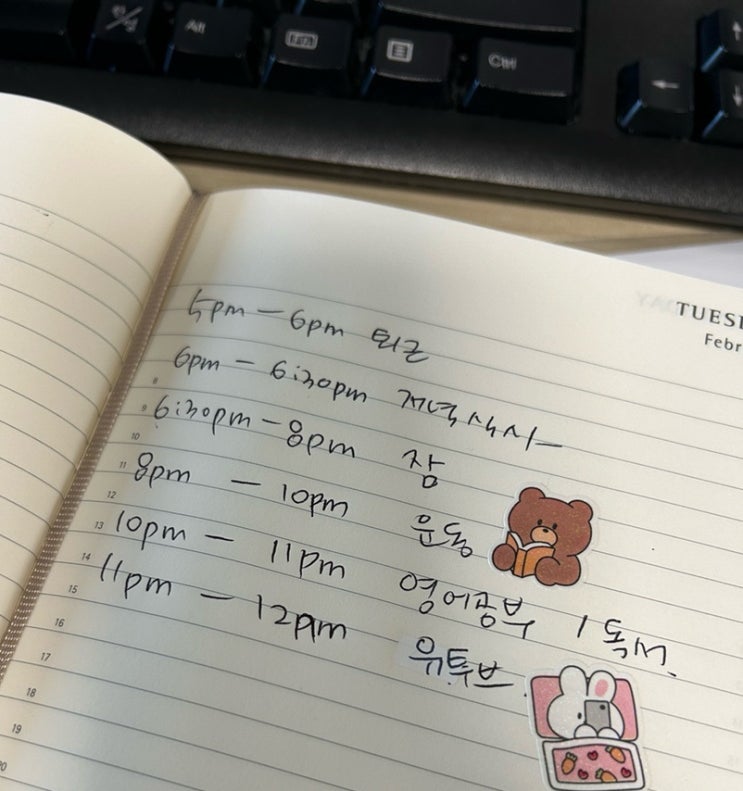 한/영
Alt
Ctrl
TUES
Febr
5pm - 6pm 퇴근
6pm - 6:30pm 저녁식사
6:30pm - 8pm 잠
8pm - 10pm 운동
10pm - 11pm 영어공부 / 독서
11pm - 12am 유튜브
8
9
10
11
12
13
14
15
16
17
18
19
20